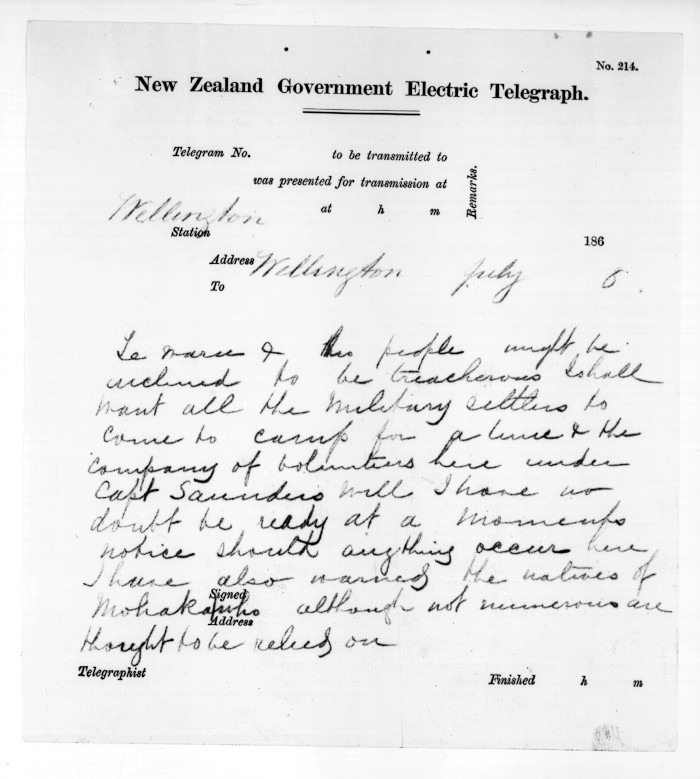 No. 214.
New Zealand Government Electric Telegraph.
Telegram No. to be transmitted to
was presented for transmission at
Remarks.
Wellington at h m
Station
186
Address Wellington July 8
To
& his people might be
inclined to be treacherous I shall
want all the Military Settlers to
come to camp for a time & the
company of Volunteers here under
Capt Saunders will I have no
doubt be ready at a moments
notice should anything occur here
I have also warned the natives of
Signed
Mohaka who although not numerous are
Address
thought to be relied on
Telegraphist
Finished h m